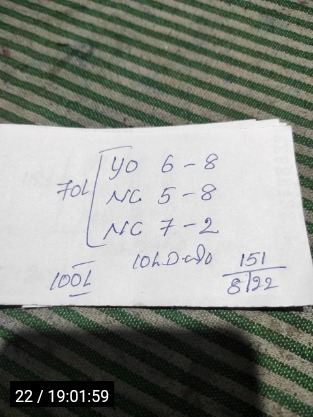 YO 6 - 8
70L NG 5 - 8
NG 7 - 2
10L
100L
151
8/22
22 / 19:01:59